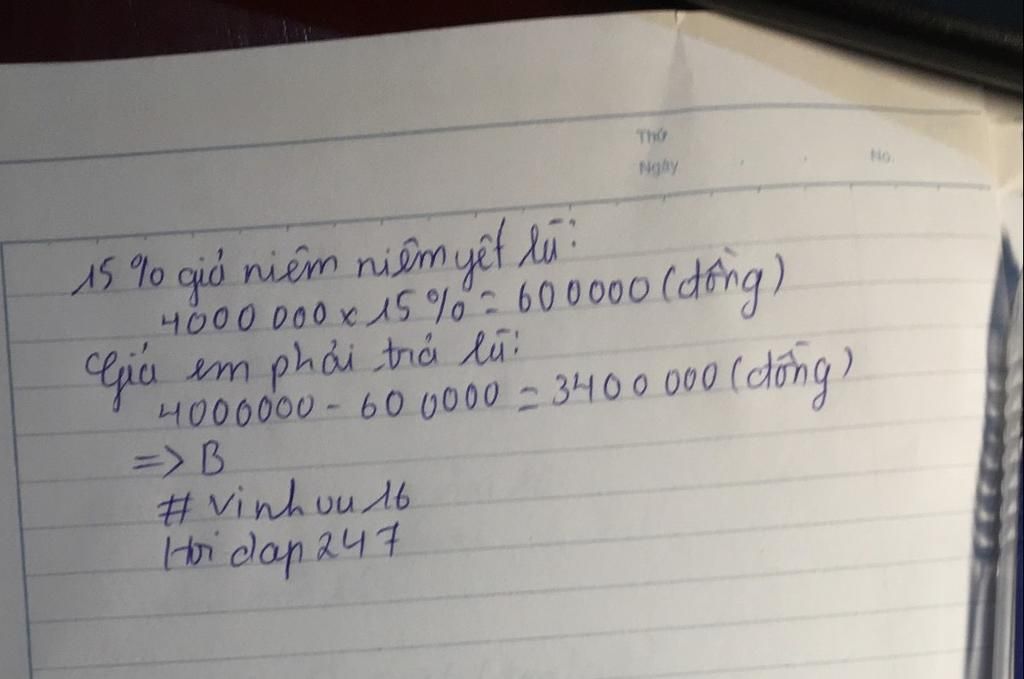 Thứ
Ngày
No.
15% giá niêm niêm yết là:
4000 000 x 15% = 600000 (đồng)
Giá em phải trả là:
4000000 - 600000 = 3400 000 (đồng)
=> B
# vinhvu16
Hoidap247